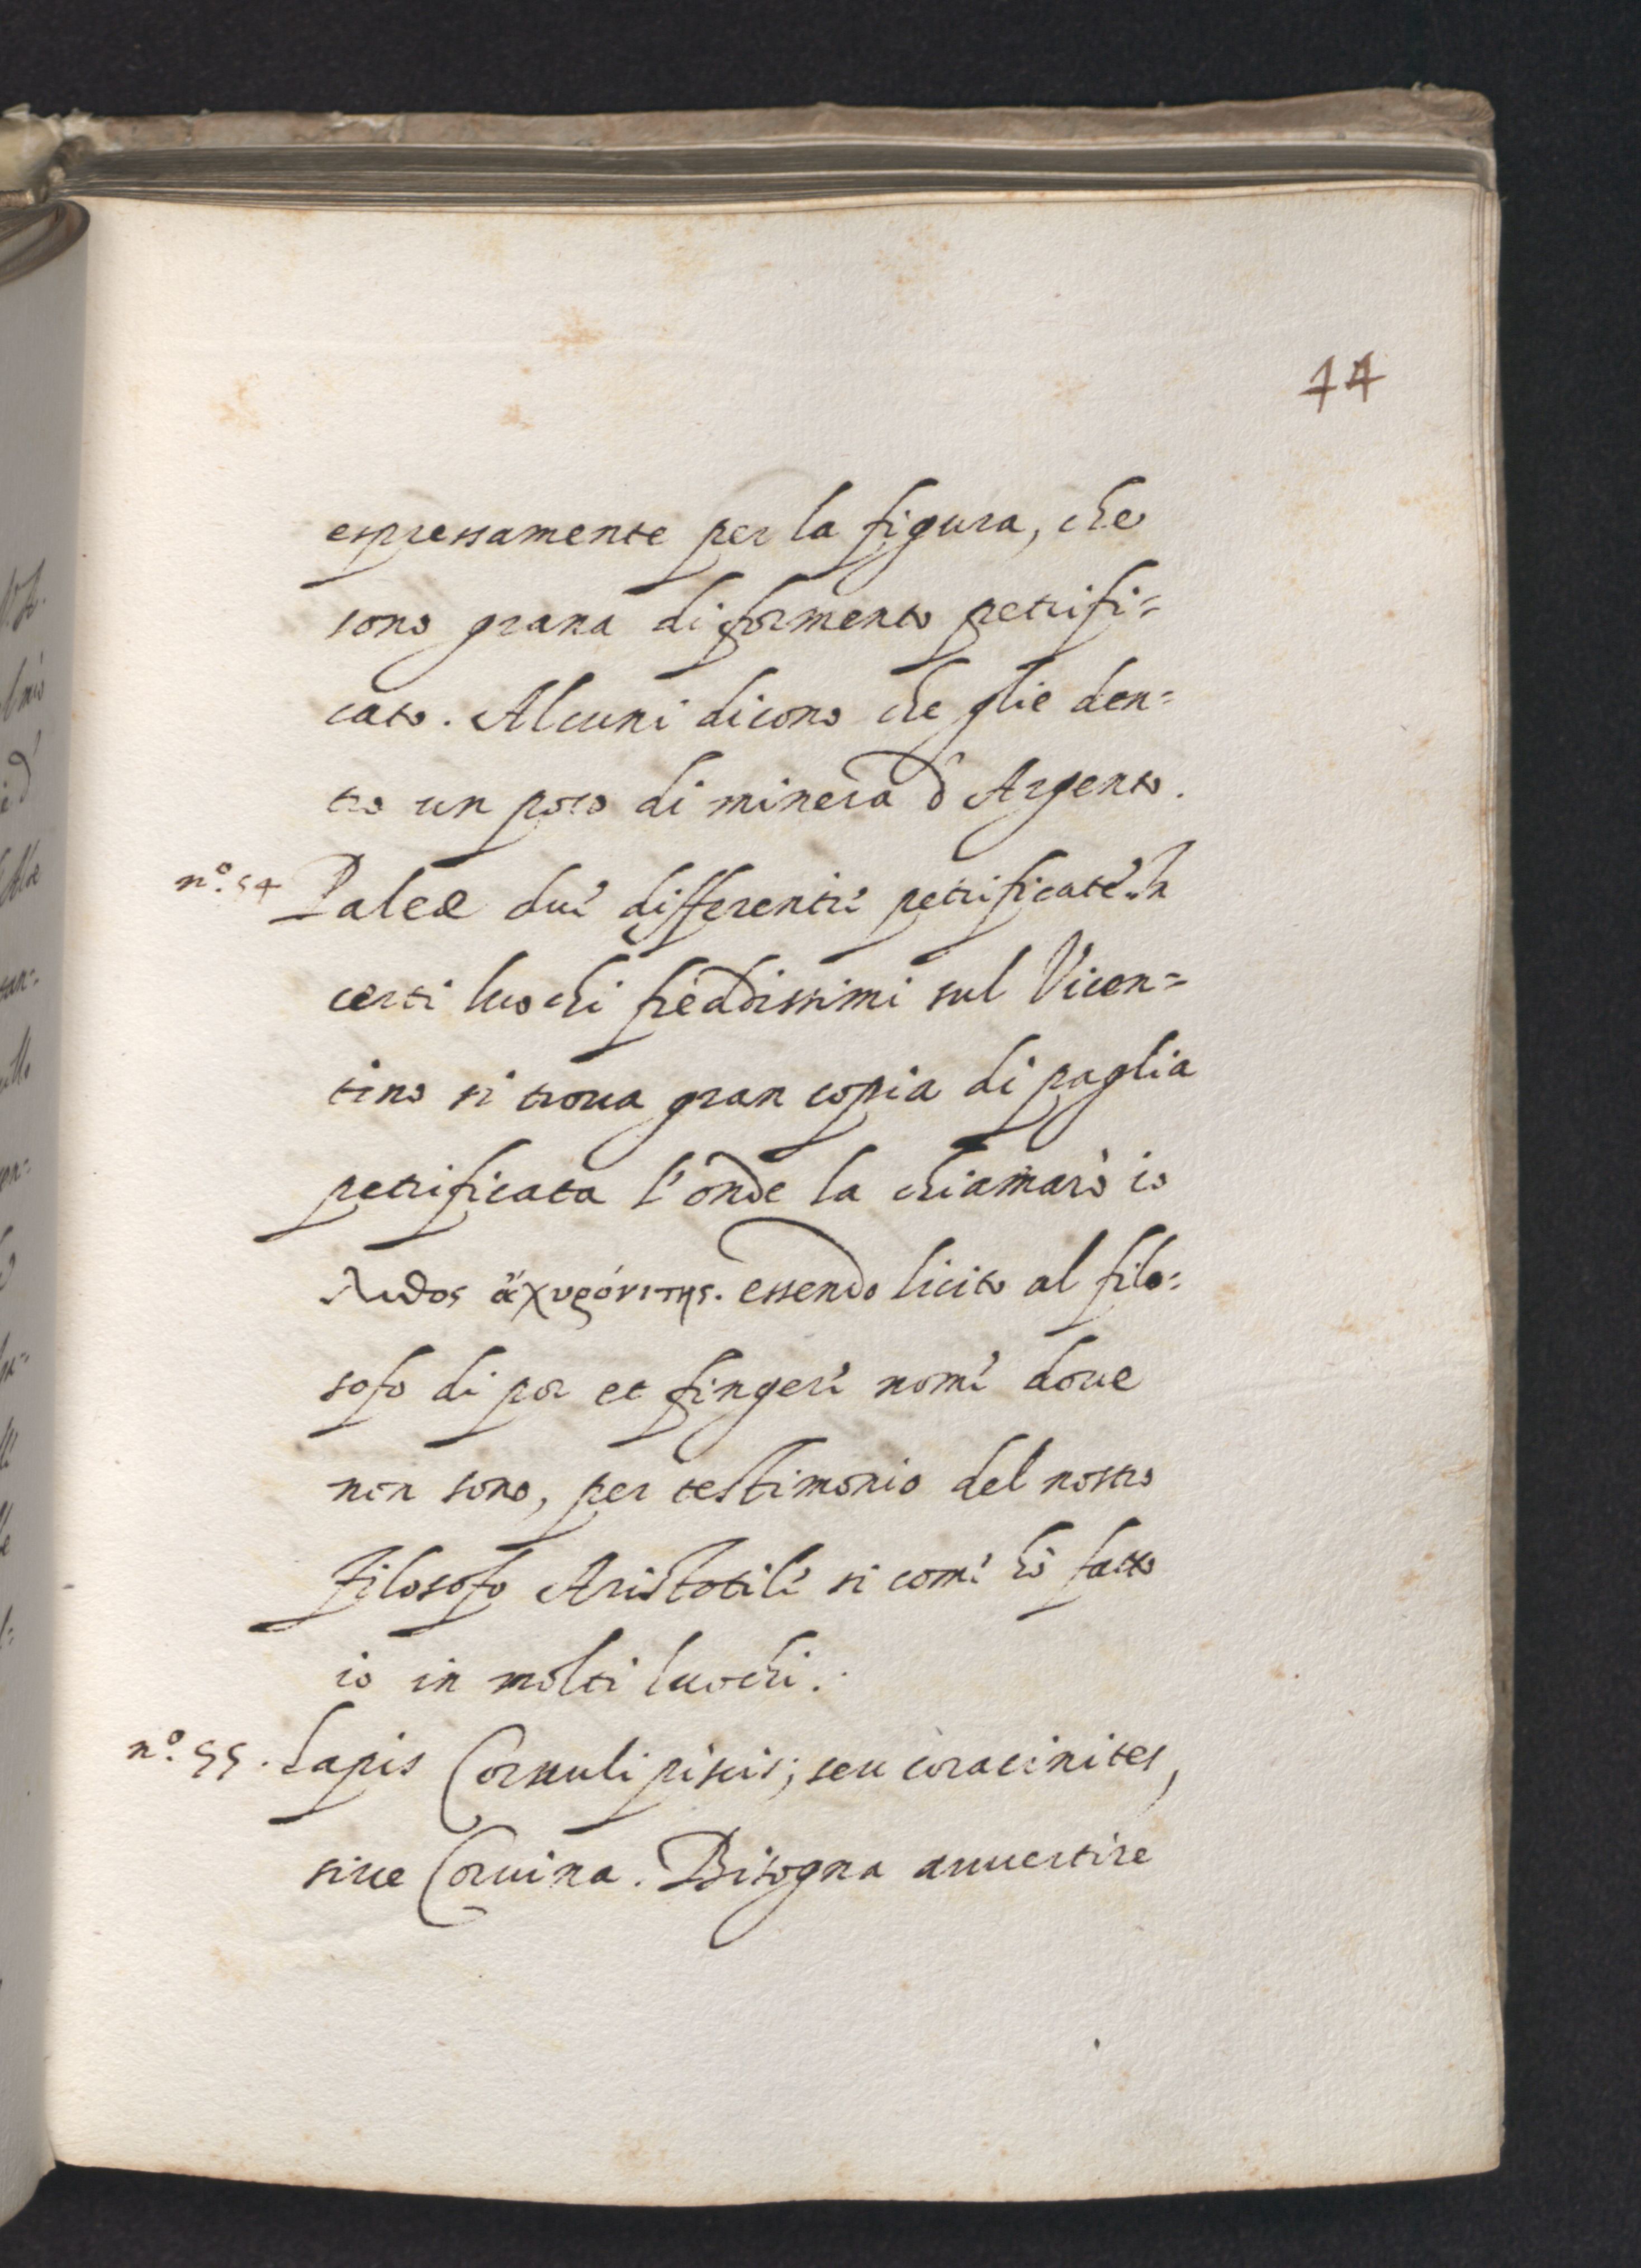 14
espressamente per la figura, che
sono grana di formento petrifi=
cato. Alcuni dicono che glie den=
tro un poco di minera d'Argento.
n.º 54 Paleæ due differente petrificate. In
certi luochi freddissimi sul Vicen=
tino si troua gran copia di paglia
petrificata l'onde la chiamarò io
λιθος ἄχυρόνιτης. essendo licito al filo=
sofo di por et fingere nome doue
non sono, per testimonio del nostro
filosofo Aristotile si come hò fatto
io in molti luochi.
n.º 55. Lapis Coruuli piscis; seu coracinites,
siue Coruina. Bisogna auuertire